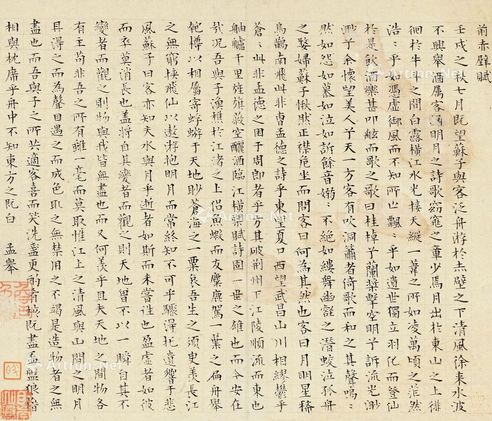 前赤壁賦
壬戌之秋七月既望蘇子與客泛舟游於赤壁之下清風徐来水波
不興舉酒屬客誦明月之詩歌窈窕之章少焉月出於東山之上徘
徊於斗牛之間白露橫江水光接天縱一葦之所如凌萬頃之茫然
浩〻乎如馮虛御風而不知所止飄〻乎如遺世獨立羽化而登仙
於是飲酒樂甚叩舷而歌之歌曰桂棹兮蘭槳擊空明兮訴流光渺
渺兮余懷望美人兮天一方客有吹洞蕭者倚歌而和之其聲嗚〻
然如怨如慕如泣如訴餘音嫋〻不絕如縷舞幽壑之潛蛟泣孤舟
之嫠婦蘇子愀然正襟危坐而問客曰何為其然也客曰月明星稀
烏鵲南飛此非曹孟德之詩乎東望夏口西望武昌山川相繆鬱乎
蒼〻此非孟德之困于周郎者乎方其破荊州下江陵順流而東也
舳艫千里旌旗蔽空釃酒臨江橫槊賦詩固一世之雄也而今安在
哉況吾與子漁樵於江渚之上侶魚蝦而友麋鹿駕一葉之扁舟舉
匏樽以相屬寄蜉蝣于天地眇蒼海之一粟哀吾生之須臾羨長江
之無窮挾飛仙以遨遊抱明月而常終知不可乎驟得托遺響于悲
風蘇子曰客亦知夫水與月乎逝者如斯而未嘗往也盈虛者如彼
而卒莫消長也盖將自其變者而觀之則天地曾不以一瞬自其不
變者而觀之則物與我皆無盡也而又何羨乎且夫天地之間物各
有主苟非吾之所有雖一毫而莫取惟江上之清風與山間之明月
耳得之而為聲目遇之而成色取之無禁用之不竭是造物者之無
盡也而吾與子之所共適客喜而笑洗盞更酌肴核既盡盃盤狼藉
相與枕席乎舟中不知東方之既白 孟舉